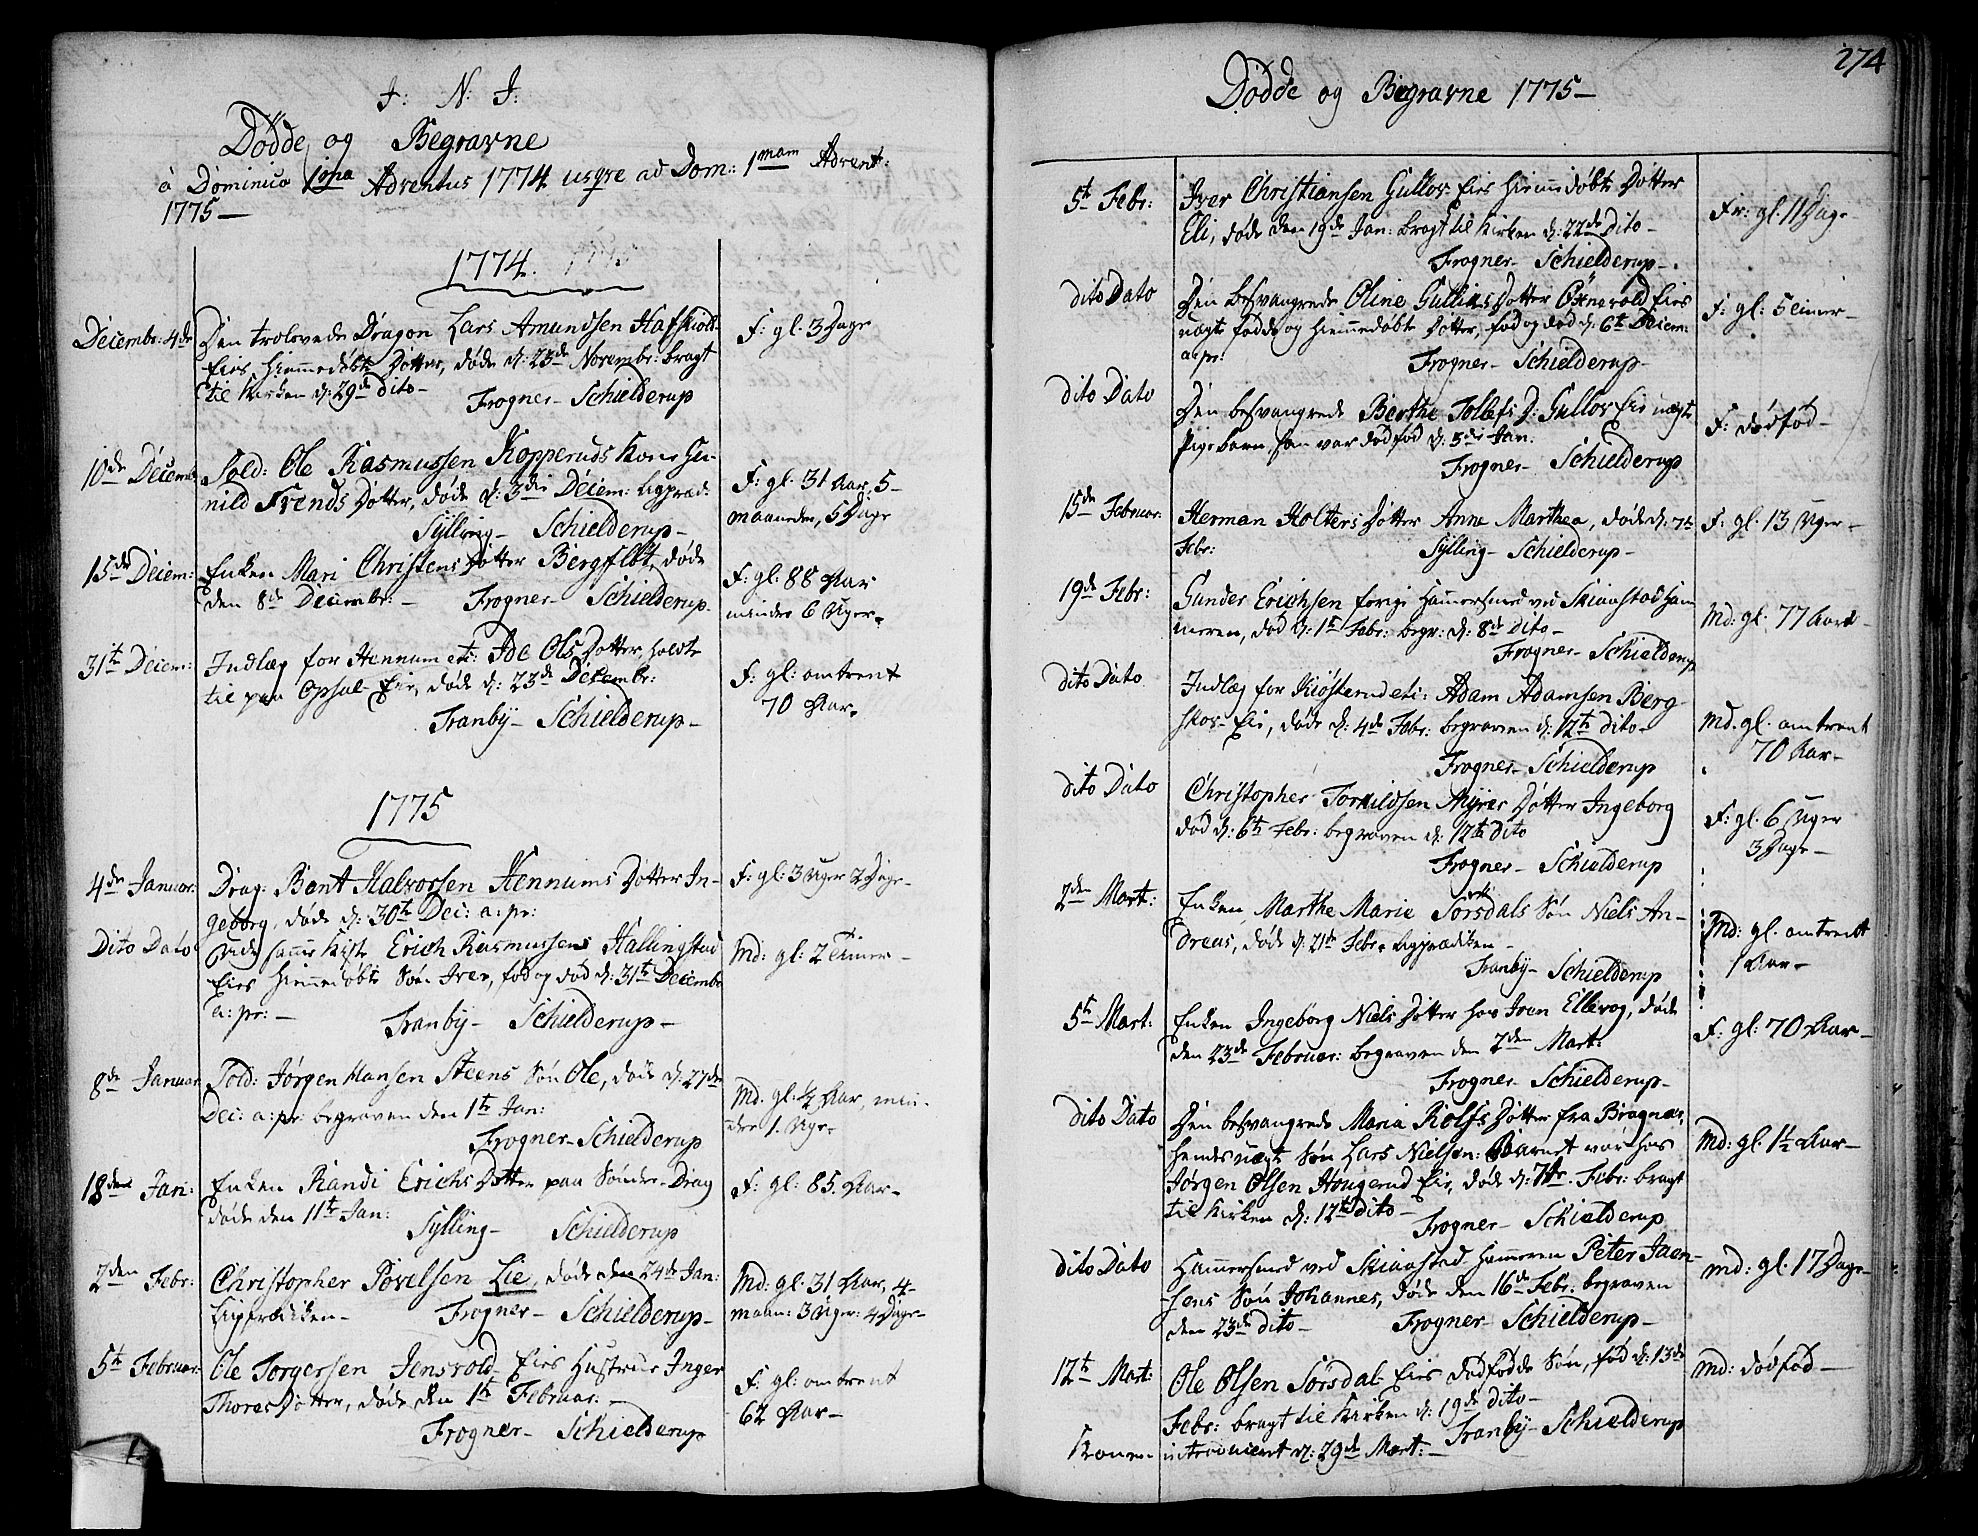 J: N: J:
Dödde og Begravne
a Dominica 1ma Adventus 1774 usqve ad Dom: 1mam Advent:
1775 —
1774.
Decembr: 4de
Den trolovede Dragon Lars Amundsen Hafskiold-
Eies hiemmedøbte Dotter, døde d: 23de Novembr: bragt
til Kirken d: 29de dito —
Frogner — Schielderup
F: gl: 3 Dage
10de Decemb:
Sold: Ole Rasmussen Kopperuds Kone Gu-
nild Svends Dotter, døde d: 3die Decem: Ligpræd:
Sylling — Schielderup —
F: gl: 31 Aar, 5
maaneder, 5 Dage
15de Decem:
Enken Mari Christens Dotter Bergflødt, døde
den 8de Decembr: —
Frogner — Schielderup —
F: gl: 88 Aar
minder 6 Uger —
31te Decem:
Indlæg for Hennum etc: Ade Ols Dotter, holdte
til paa Opsal-Eie, døde d: 23de Decembr:
Tranby — Schielderup —
F: gl: omtrent
70 Aar —
1775
4de Januar:
Drag: Bent Halvorsen Hennums Dotter In-
geborg, døde d: 30te Dec: a: pr:
F: gl: 3 Uger 2 Dage —
Dito Dato
Erich Rasmussens Hallingstad
Eies hiemmedøbte Søn Iver, fød og død d: 31te Decembr
a: pr: —
Tranby — Schielderup —
Md: gl: 2 Timer —
8de Januar
Sold: Jørgen Hansen Steens Søn Ole, døde d: 27de
Dec: a: pr: begraven den 1te Jan:
Frogner — Schielderup
Md. gl: ½ Aar, min-
dre 1. Uge —
18den Jan:
Enken Randi Erichs Dotter paa Søndre-Drag
døde den 11te Jan:
Sylling — Schielderup
F: gl: 85. Aar —
2den Febr:
Christopher Povelsen Lie, døde den 24de Jan:
Ligprædiken —
Frogner — Schielderup —
Md: gl: 31 Aar, 4
maan: 3 Uger: 4 Dage —
5te Februar:
Ole Torgersen Jensvold-Eies Hustrue Inger
Thores Dotter, døde den 1te Februar: —
Frogner — Schielderup
F: gl: omtrent
62 Aar —
274
Dödde og Begravne 1775 —
5te Febr:
Iver Christiansen Gullov-Eies hiemmedøbte Dotter
Eli, døde den 19de Jan: bragt til Kirken d: 22de Dito —
Frogner — Schielderup —
Fr: gl: 11 Dage
dito Dato
Den besvangrede Oline Gullixs Dotter Öxnevold Eies
uægte fødde og hiemmedøbte Dotter, fød og død d: 6te Decem:
a: pr:
Frogner — Schielderup —
F: gl: 5 timer —
dito Dato
Den besvangrede Berthe Tollefs D: Gullov Eie uægte
Pigebarn som var dødfød d: 3die Jan:
Frogner — Schielderup
F: dødfød —
15de Februar:
Herman Holters Dotter Anne Marthea, døde d: 7de
Febr:
Sylling — Schielderup —
F: gl: 13 Uger —
19de Febr:
Gunder Erichsen forige Hammersmed ved Skiaastad Ham-
meren, død d: 1te Febr: begr: d: 8de dito —
Frogner — Schielderup
Md: gl: 77 Aar —
dito Dato
Indlæg for Kiøsterud etc: Adam Adamsen Berg-
skov-Eie, døde d: 4de Febr: begraven d: 12te dito —
Frogner — Schielderup
Md: gl: omtrent
70 Aar —
dito Dato
Christopher Torkildsen Myres Dotter Ingeborg
død d: 6te Febr: begraven d: 12te dito
Frogner — Schielderup
F: gl: 6 Uger
3 Dage —
2den Mart:
Enken Marthe Marie Sorsdals Søn Niels An-
dreas, døde d: 21de Febr: Ligprædiken —
Tranby — Schielderup
Md: gl. omtrent
1 Aar —
5te Mart:
Enken Ingeborg Niels Dotter hos Iven Ellevog, døde
den 23de Februar: begraven den 2den Mart:
Frogner — Schielderup —
F: gl: 70 Aar —
dito Dato
Den besvangrede Maria Rolfs Dotter fra Bragnæs,
hendes uægte Søn Lars Nielsen: Barnet var hos
Jørgen Olsen Hougerud Eie, døde d: 7de Febr: bragt
til Kirken d: 12te dito —
Frogner — Schielderup
Md: gl: 1½ Aar —
dito Dato
Hammersmed ved Skiaastad Hammeren Peter Jaen-
sens Søn Johannes, døde den 16de Febr: begraven
den 23de dito —
Frogner — Schielderup —
md: gl: 17 Dage —
12te Mart:
Ole Olsen Sorsdal-Eies dødfødde Søn, fød d: 13de
Febr: bragt til Kirken d: 19de dito —
Tranby — Schielderup
Md: dødfød —
Konen introduceret d: 29de Mart: —